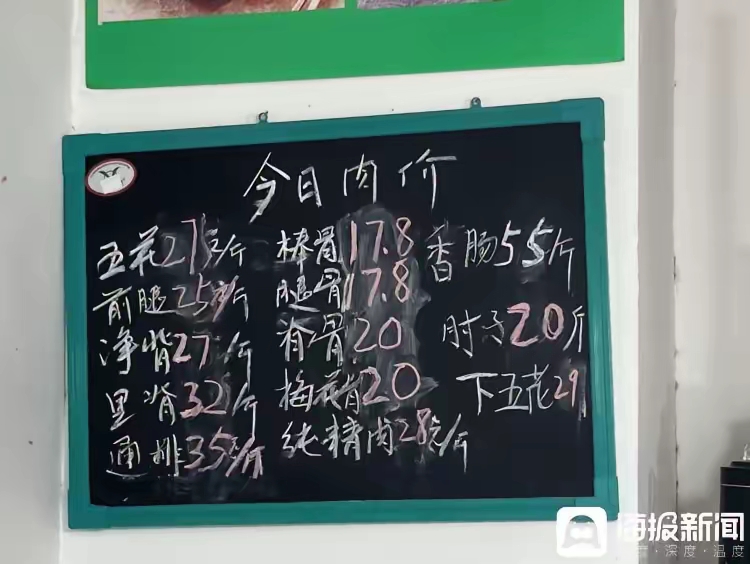 今日肉价
五花27元/斤
前腿25元/斤
净脊27/斤
里脊32/斤
通排35元/斤
棒骨17.8
腿骨17.8
脊骨20
梅花肉20
纯精肉28元/斤
香肠55斤
肘子20斤
下五花29
海报新闻
深度·温度